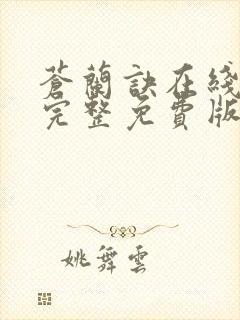 蒼蘭訣在綫
完整免費版
姚舞雲